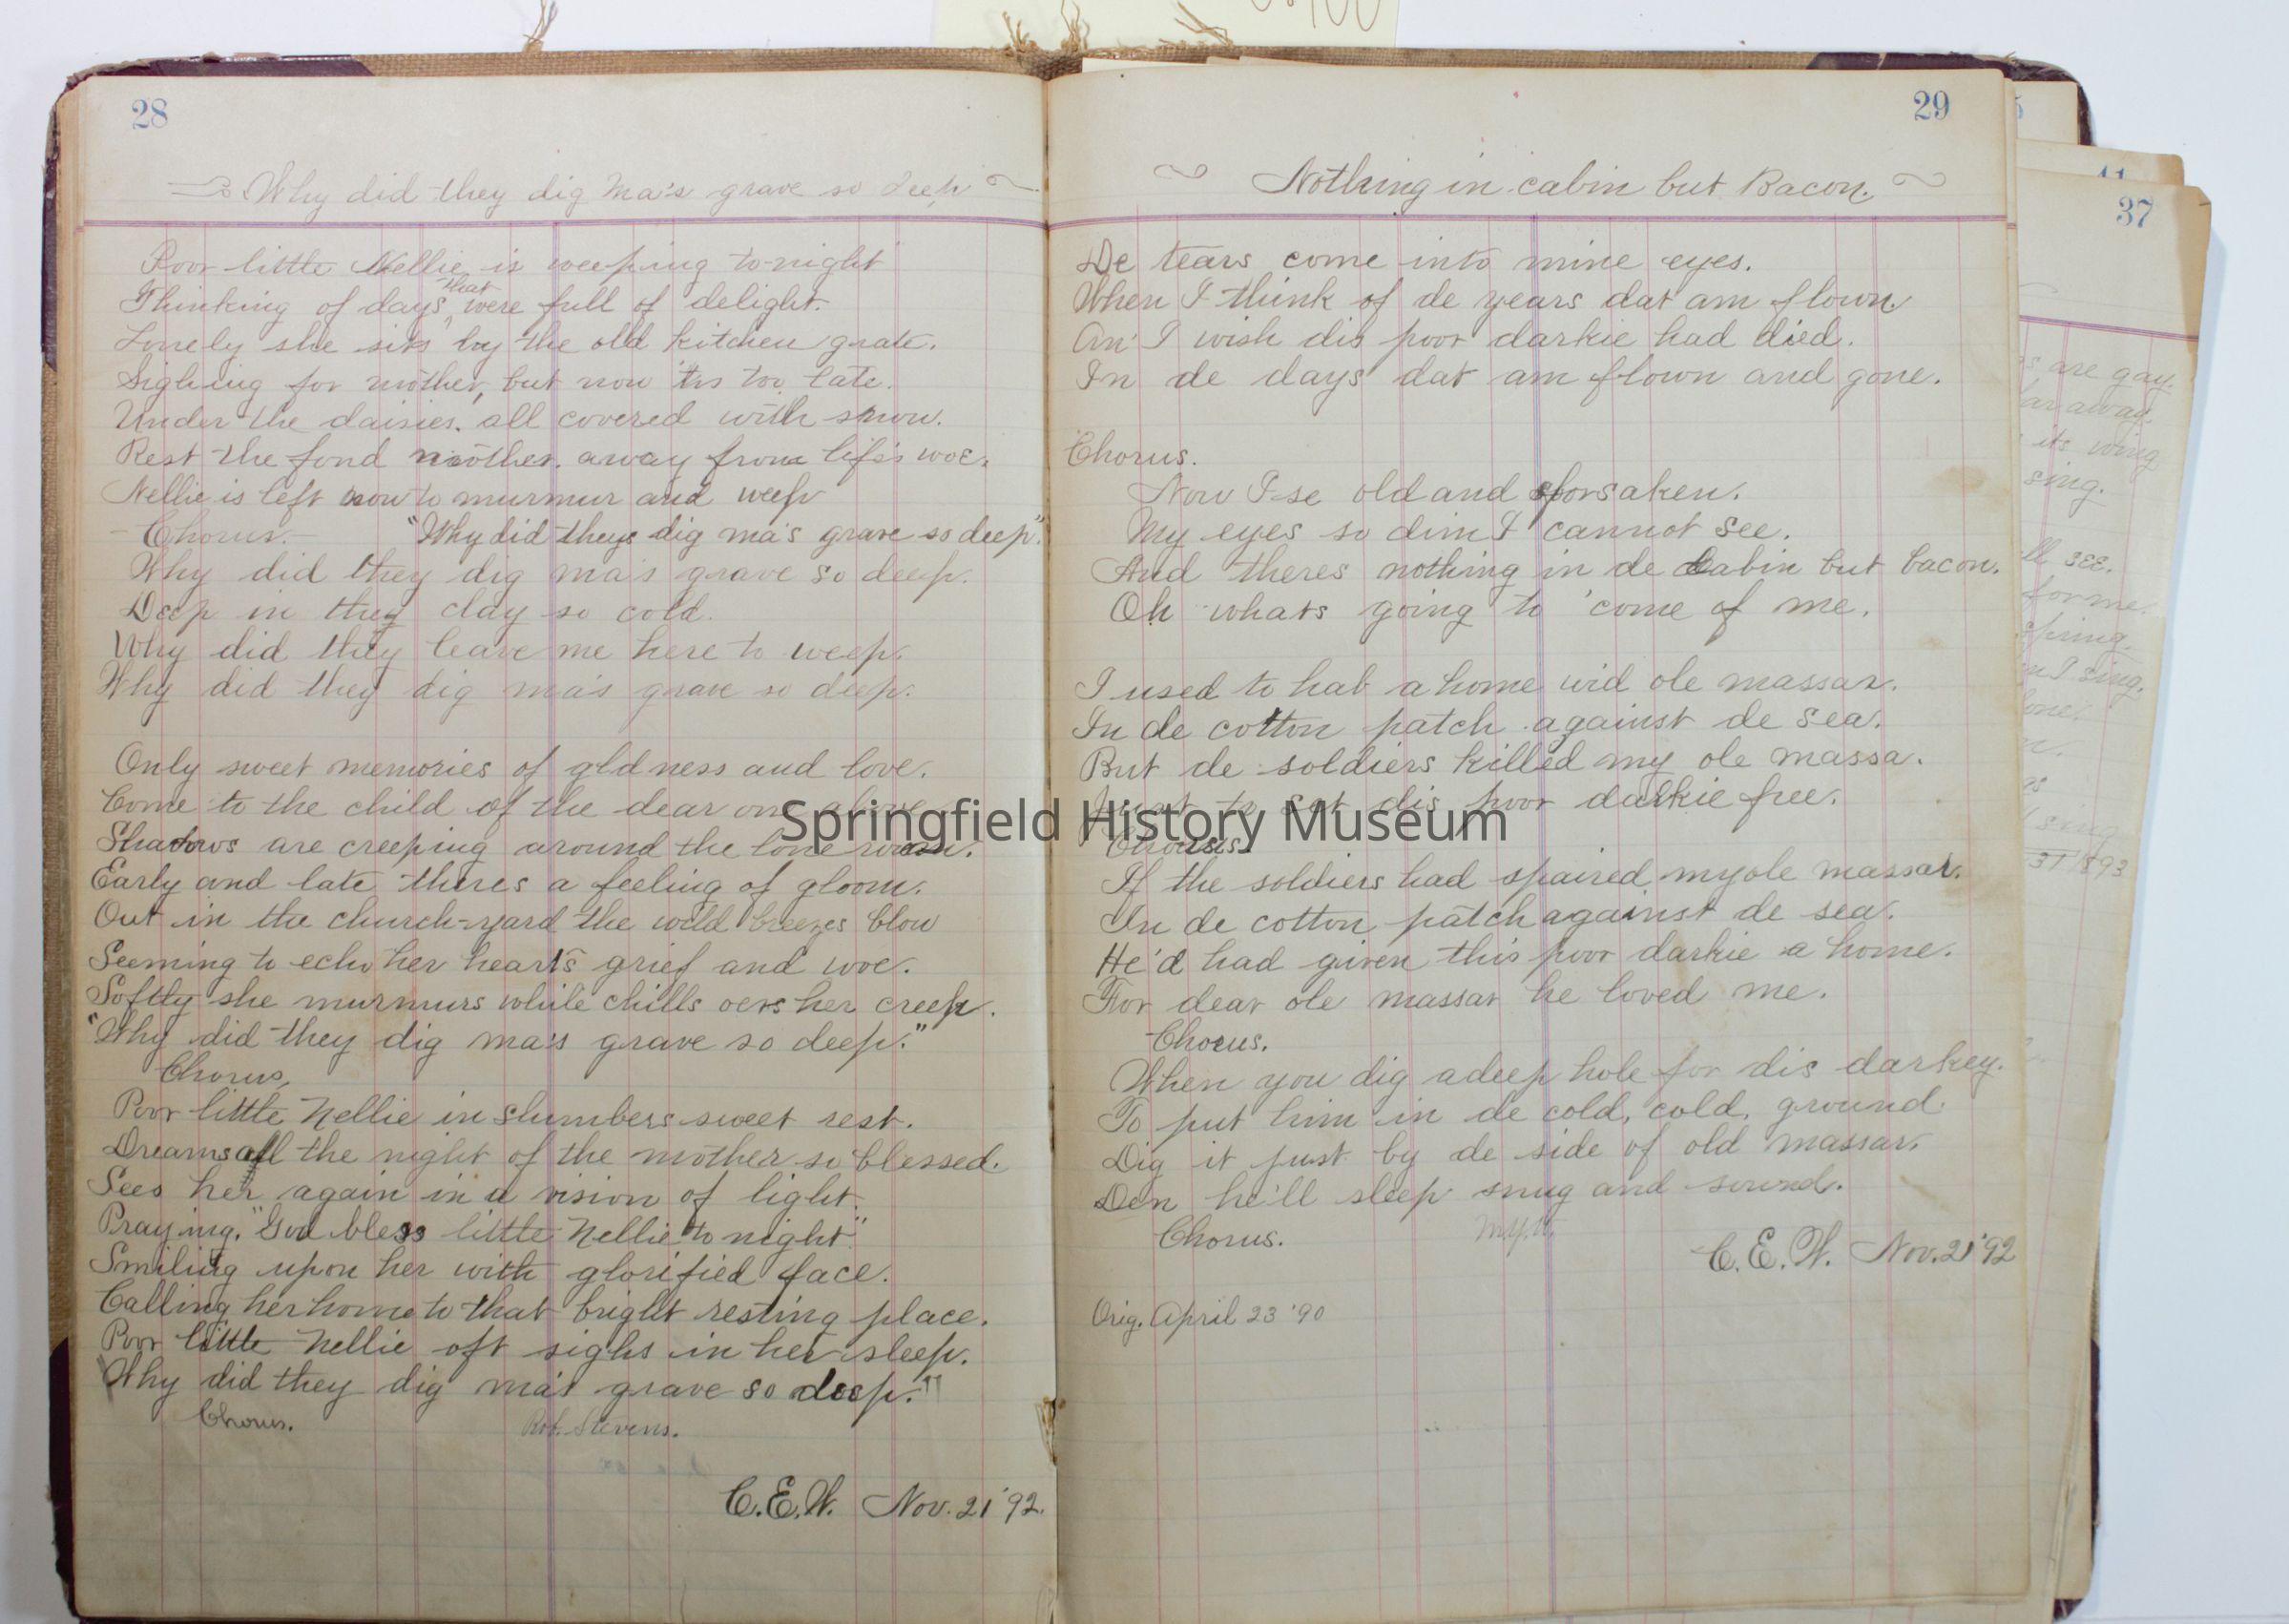 28
Why did they dig Ma's grave so deep
Poor little Nellie is weeping to-night
Thinking of days that were full of delight.
Lonely she sits by the old kitchen grate.
Sighing for mother, but now 'tis too late.
Under the daisies. all covered with snow.
Rest the fond mother. away from life's woe.
Nellie is left now to murmur and weep
- Chorus. - "Why did they dig ma's grave so deep".
Why did they dig ma's grave so deep.
Deep in they clay so cold.
Why did they leave me here to weep.
Why did they dig ma's grave so deep.
Only sweet memories of gldness and love.
Come to the child of the dear one above
Shadows are creeping around the lone room.
Early and late theres a feeling of gloom.
Out in the church-yard the wild breezes blow
Seeming to echo her heart's grief and woe.
Softly she murmurs while chills oers her creep.
"Why did they dig ma's grave so deep."
Chorus,
Poor little Nellie in slumbers sweet rest.
Dreams all the night of the mother so blessed.
Sees her again in a vision of light.
Praying, "God bless little Nellie to night"
Smiling upon her with glorified face.
Calling her home to that bright resting place.
Poor little Nellie oft sighs in her sleep.
"Why did they dig ma's grave so deep."
Chorus. Rob. Stevens.
C.E.W. Nov. 21 '92.
29
Nothing in cabin but Bacon.
De tears come into mine eyes.
When I think of de years dat am flown
An' I wish dis poor darkie had died.
In de days dat am flown and gone.
Chorus.
Now I-se old and forsaken.
My eyes so dim I cannot see.
And theres nothing in de cabin but bacon.
Oh whats going to 'come of me.
I used to hab a home wid ole massar.
In de cotton patch against de sea.
But de soldiers killed my ole massa.
to set dis poor darkie free.
Chorus.
If the soldiers had spaired my ole massar.
In de cotton patch against de sea.
He'd had given this poor darkie a home.
For dear ole massar he loved me.
Chorus.
When you dig a deep hole for dis darkey.
To put him in de cold, cold, ground.
Dig it just by de side of old massar.
Den he'll sleep snug and sound.
Chorus.
C.E.W. Nov. 21 '92
Orig. April 23 '90
37
s are gay.
far away.
its wing
sing.
ll see.
for me.
spring.
n I sing.
sing
31 1893
Springfield History Museum